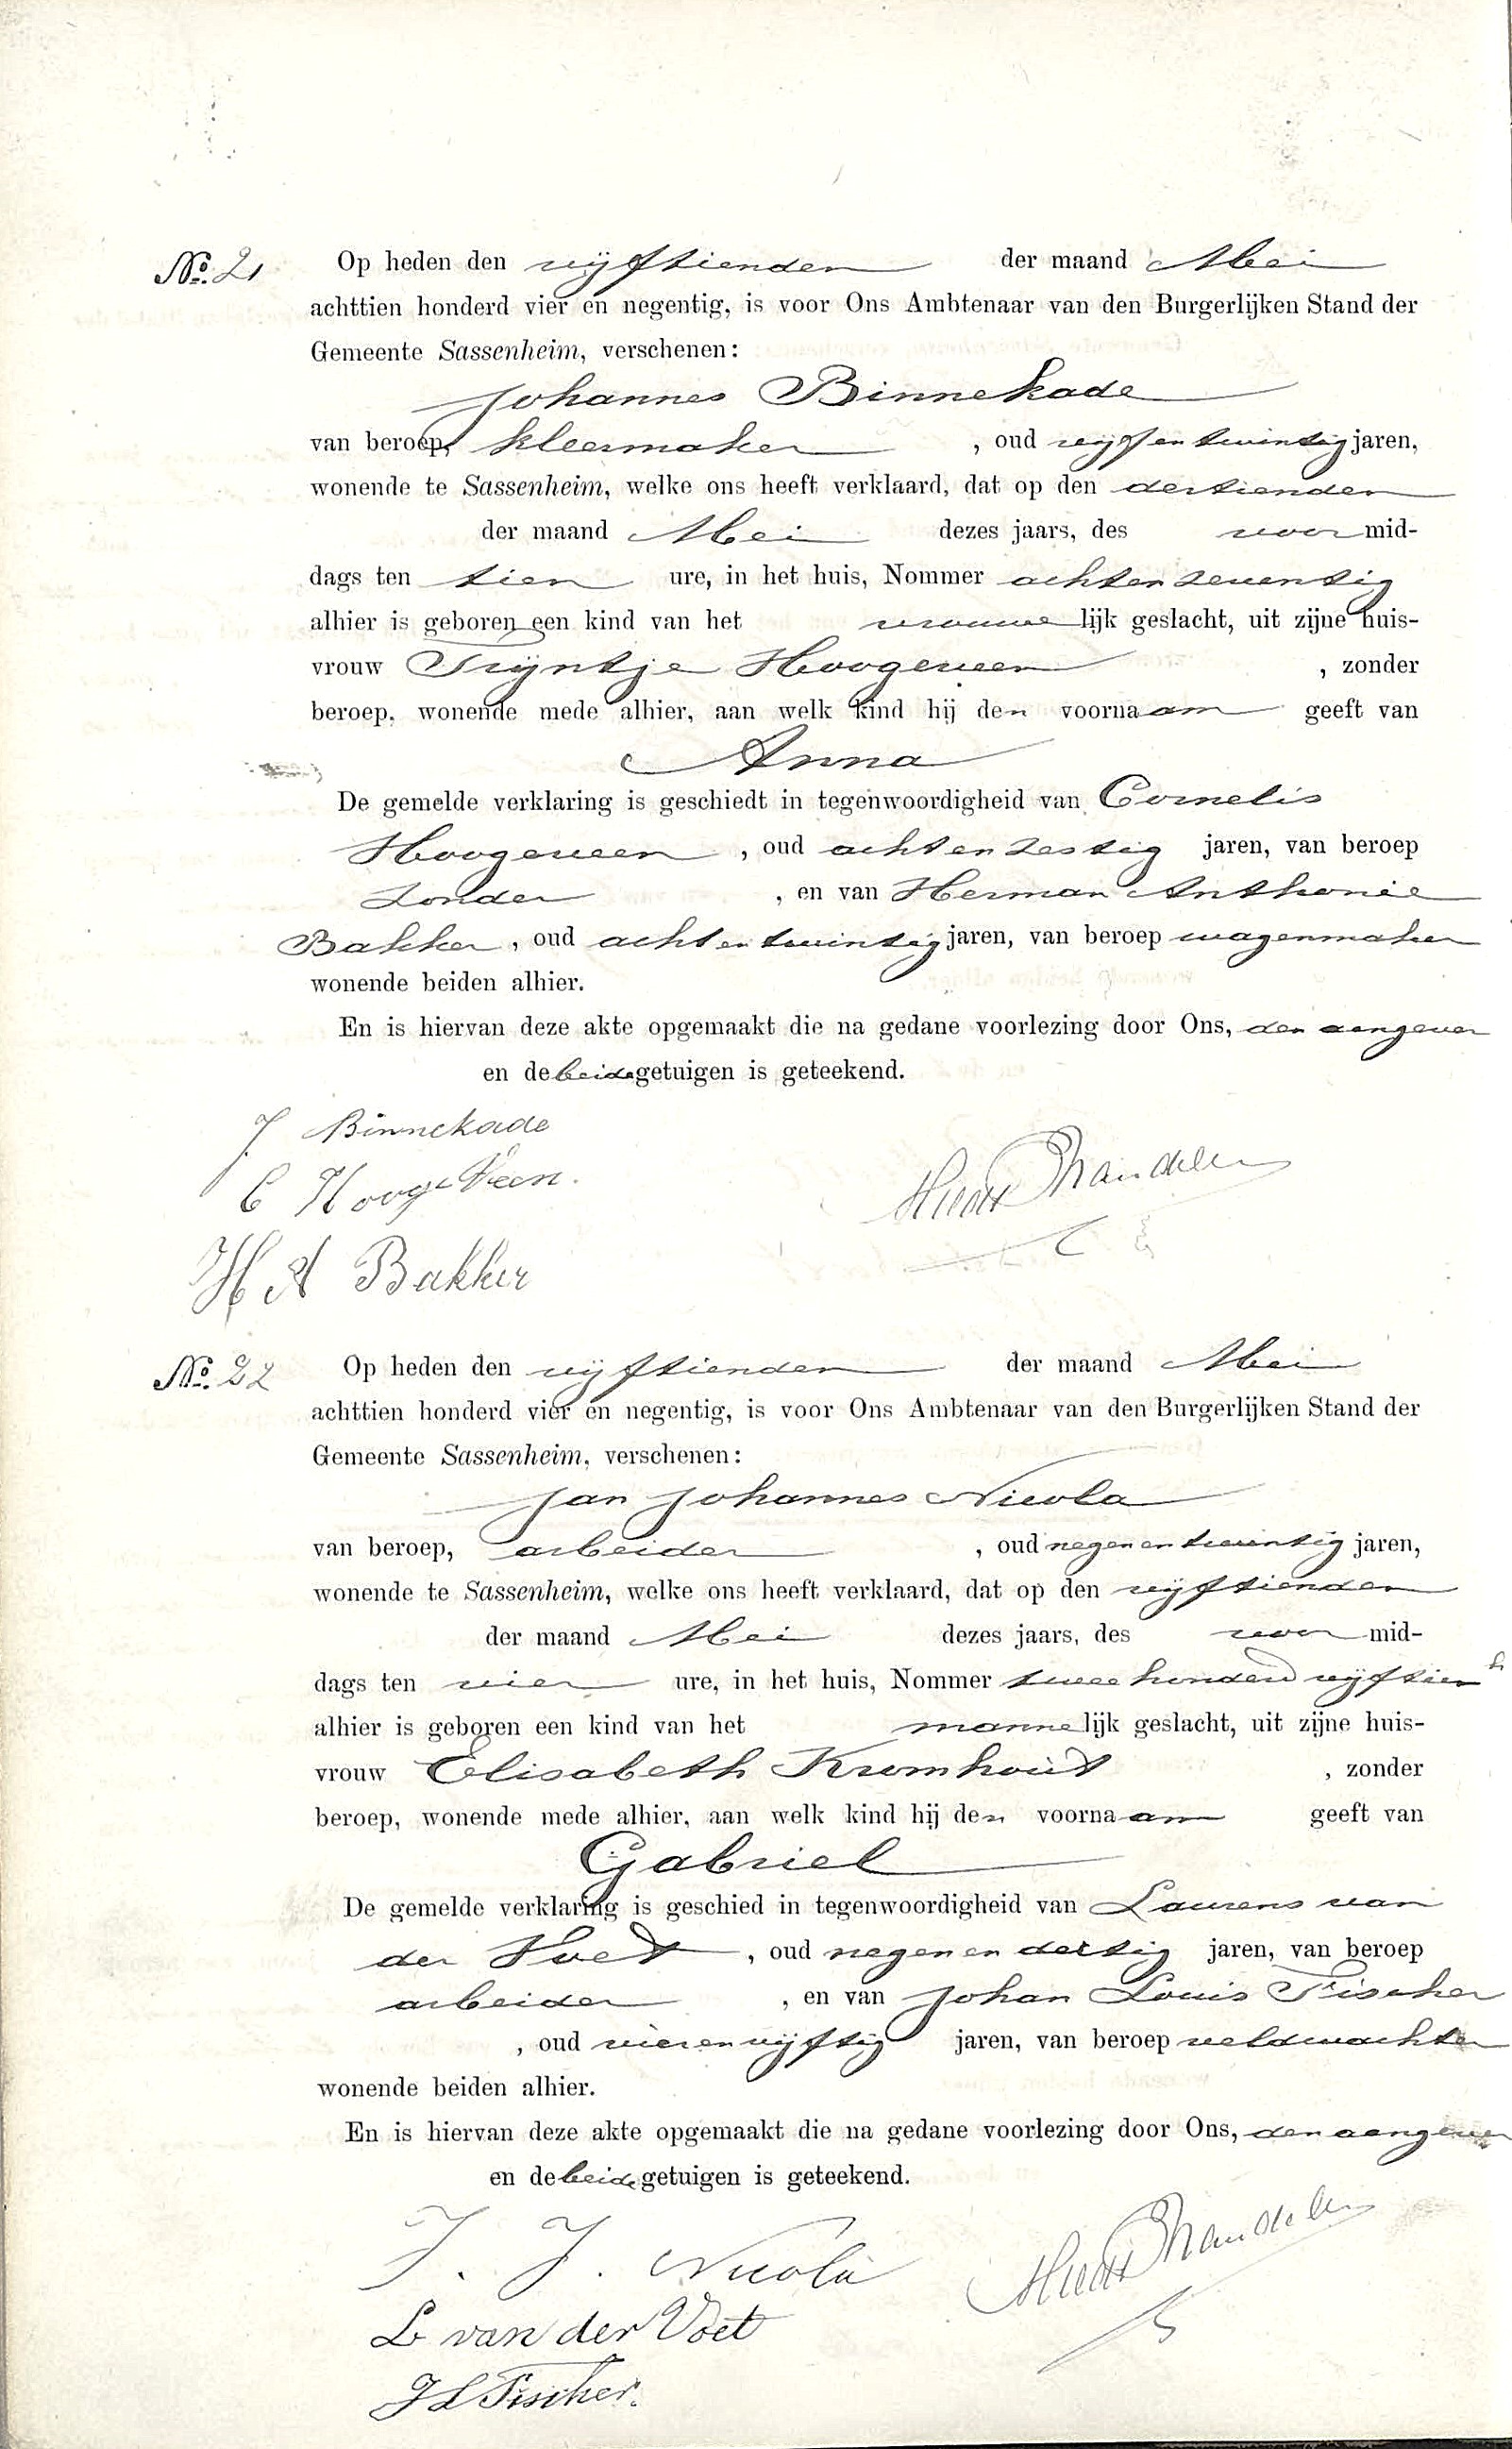 No. 21 Op heden den vijftienden der maand Mei
achttien honderd vier en negentig, is voor Ons Ambtenaar van den Burgerlijken Stand der
Gemeente Sassenheim, verschenen:
Johannes Binnekade
van beroep, kleermaker , oud vijf en twintig jaren,
wonende te Sassenheim, welke ons heeft verklaard, dat op den dertienden
der maand Mei dezes jaars, des voor mid-
dags ten tien ure, in het huis, Nommer acht en zeventig
alhier is geboren een kind van het vrouwelijk geslacht, uit zijne huis-
vrouw Trijntje Hoogeveen , zonder
beroep, wonende mede alhier, aan welk kind hij den voornaam geeft van
Anna
De gemelde verklaring is geschiedt in tegenwoordigheid van Cornelis
Hoogeveen , oud acht en zestig jaren, van beroep
zonder , en van Herman Anthonie
Bakker , oud acht en twintig jaren, van beroep wagenmaker
wonende beiden alhier.
En is hiervan deze akte opgemaakt die na gedane voorlezing door Ons, den aangever
en de beide getuigen is geteekend.
J Binnekade
C HoogeVeen.
H A Bakker
No. 22 Op heden den vijftienden der maand Mei
achttien honderd vier en negentig, is voor Ons Ambtenaar van den Burgerlijken Stand der
Gemeente Sassenheim, verschenen:
Jan Johannes Nicola
van beroep, arbeider , oud negen en twintig jaren,
wonende te Sassenheim, welke ons heeft verklaard, dat op den vijftienden
der maand Mei dezes jaars, des voor mid-
dags ten vier ure, in het huis, Nommer twee honderd vijftien b
alhier is geboren een kind van het mannelijk geslacht, uit zijne huis-
vrouw Elisabeth Kromhout , zonder
beroep, wonende mede alhier, aan welk kind hij den voornaam geeft van
Gabriel
De gemelde verklaring is geschied in tegenwoordigheid van Laurens van
der Voet , oud negen en dertig jaren, van beroep
arbeider , en van Johan Louis Fischer
, oud vier en vijftig jaren, van beroep veldwachter
wonende beiden alhier.
En is hiervan deze akte opgemaakt die na gedane voorlezing door Ons, den aangever
en de beide getuigen is geteekend.
J. J. Nicola
L van der Voet
J L Fischer.